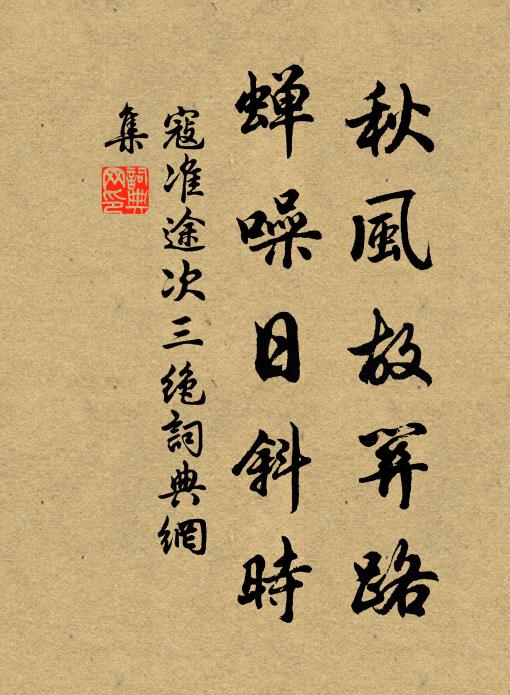 秋風故関路
蝉噪日斜時
寇准途次三绝詞典網
集
詞典
网印